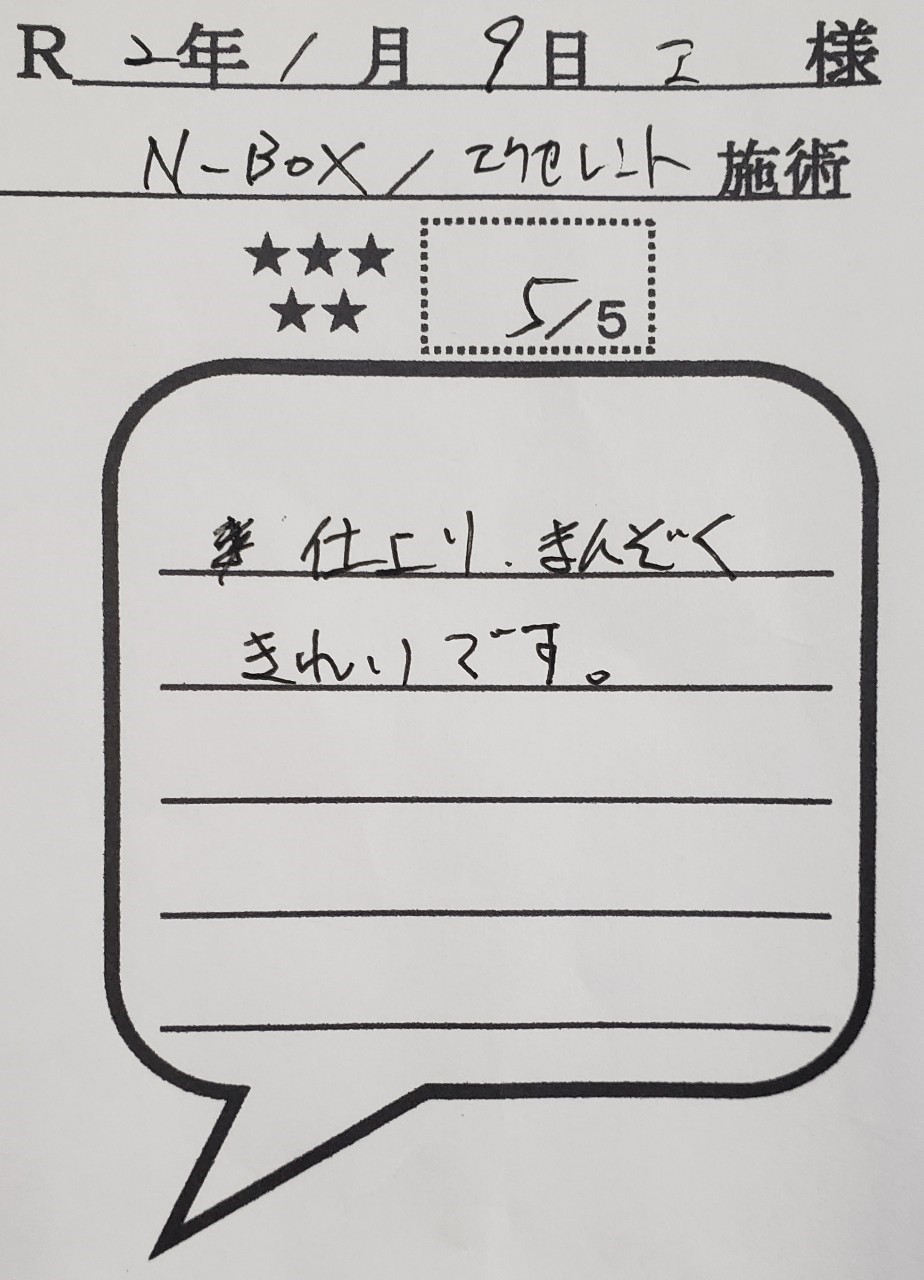 R 2年 1月 9日 エ 様
N-BOX / エクセレント 施術
★★★
★★
5/5
仕上り.まんぞく
きれいです。